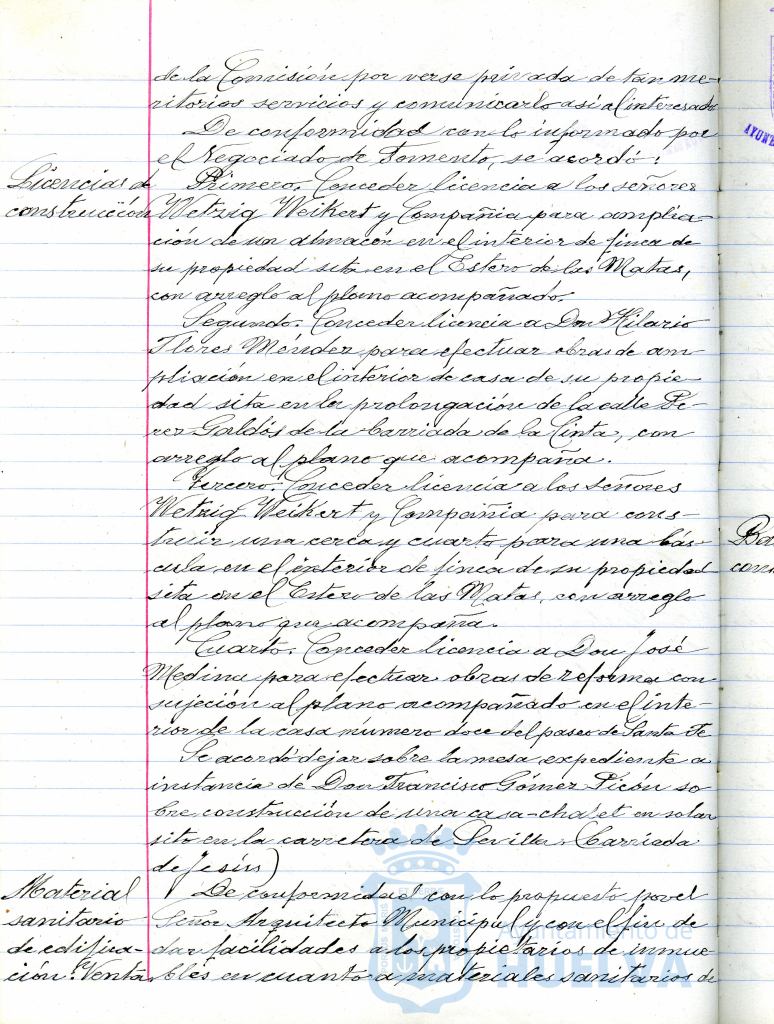 de la Comisión por verse privada de tan me-
ritorios servicios y comunicarlo así al interesado
De conformidad con lo informado por
el Negociado de Fomento, se acordó:
Licencias de
construcción
Primero. Conceder licencia a los señores
Wetzig Weikert y Compañia para amplia-
ción de un almacén en el interior de finca de
su propiedad sita en el Estero de las Matas,
con arreglo al plano acompañado.
Segundo. Conceder licencia a Don Hilario
Flores Méndez para efectuar obras de am-
pliación en el interior de casa de su propie-
dad sita en la prolongación de la calle Pé-
rez Galdós de la barriada de la Cinta, con
arreglo al plano que acompaña.
Tercero. Conceder licencia a los señores
Wetzig Weikert y Compañia para cons-
truir una cerca y cuarto para una bás-
cula en el exterior de finca de su propiedad
sita en el Estero de las Matas, con arreglo
al plano que acompaña.
Cuarto. Conceder licencia a Don José
Medina para efectuar obras de reforma con
sujeción al plano acompañado en el inte-
rior de la casa número doce del paseo de Santa Fe
Se acordó dejar sobre la mesa expediente a
instancia de Don Francisco Gómez Picón so
bre construcción de una casa-chalet en solar
sito en la carretera de Sevilla (barriada
de Jesús)
Material
sanitario
de edifica-
ción. Venta
De conformidad con lo propuesto por el
Señor Arquitecto Municipal y con el fin de
dar facilidades a los propietarios de inmue-
bles en cuanto a materiales sanitarios de
Ayuntamiento de
HUELVA